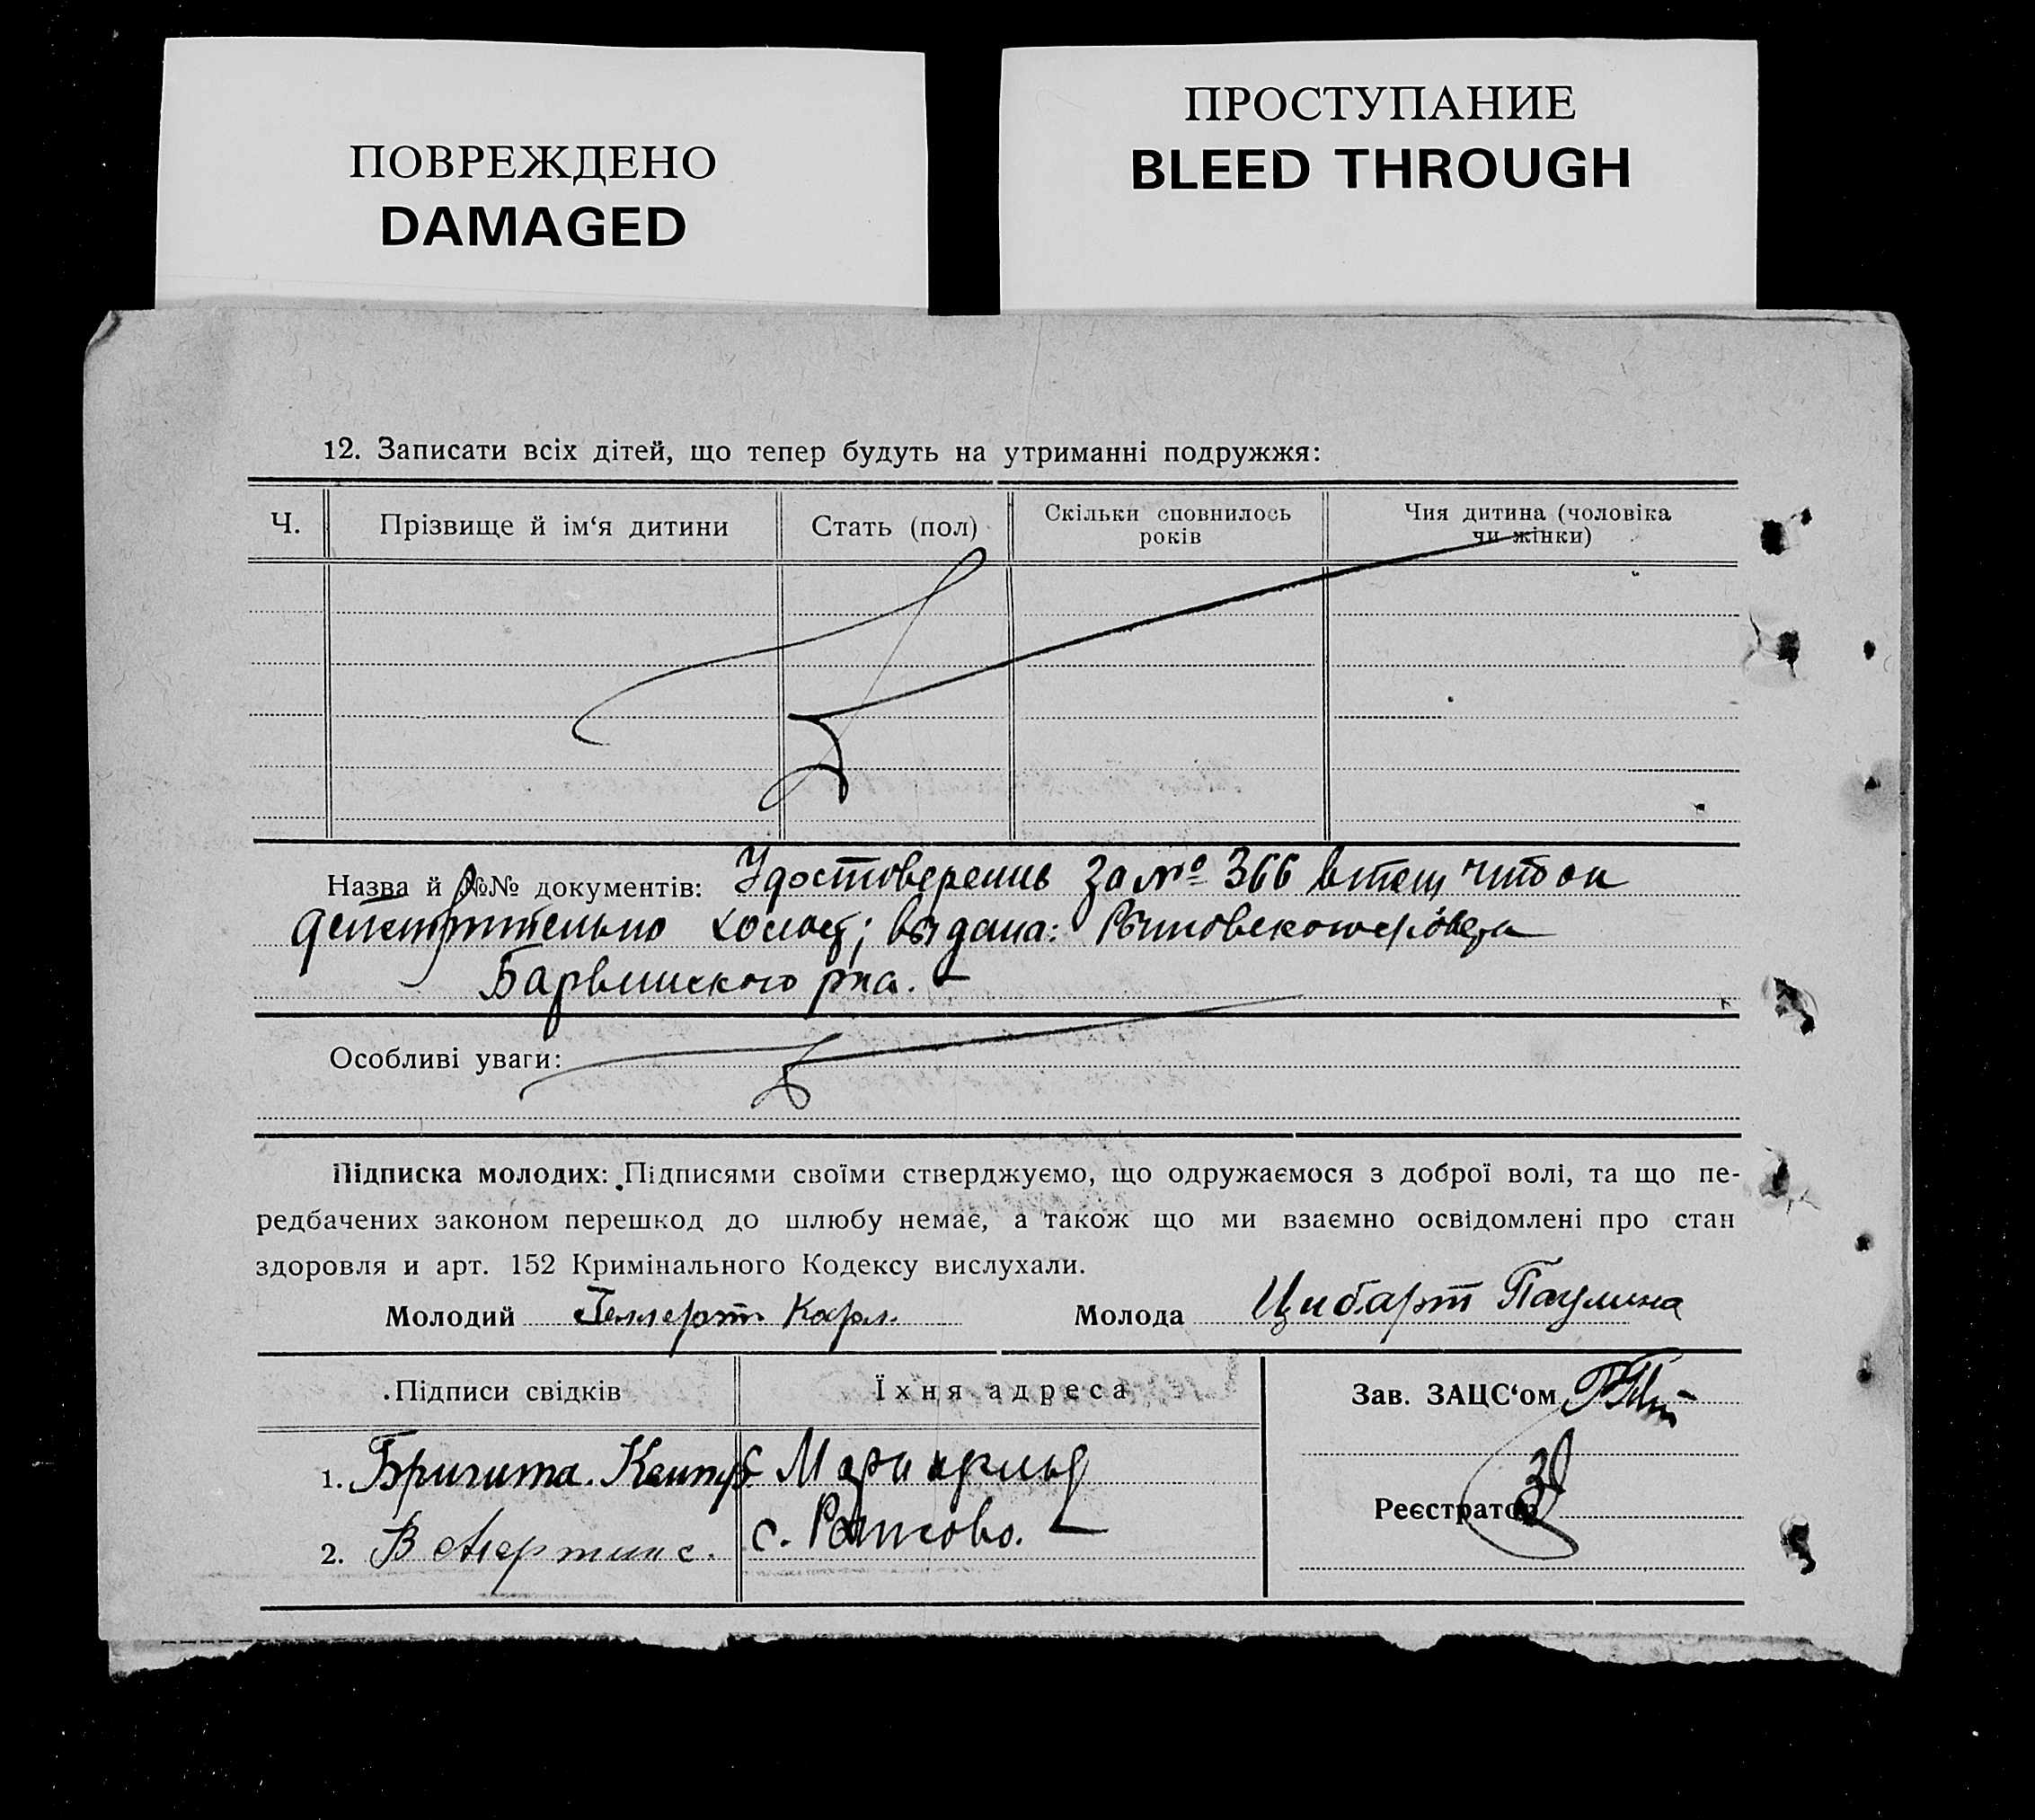 ПОВРЕЖДЕНО
DAMAGED
ПРОСТУПАНИЕ
BLEED THROUGH
12. Записати всіх дітей, що тепер будуть на утриманні подружжя:
Ч.
Прізвище й ім‘я дитини
Стать (пол)
Скільки сповнилось
років
Чия дитина (чоловіка
чи жінки)
Назва й №№ документів: Удостоверение за № 366 в том что он
действительно холост; выдана:
Барвинского р-на.
Особливі уваги:
Підписка молодих: Підписями своїми стверджуємо, що одружаємося з доброї волі, та що пе-
редбачених законом перешкод до шлюбу немає, а також що ми взаємно освідомлені про стан
здоровля и арт. 152 Кримінального Кодексу вислухали.
Молодий Геллерт Карл. Молода Цибарт Паулина
Підписи свідків
Їхня адреса
Зав. ЗАЦС‘ом
1. Бригита
2. В
с. Рытово.
Реєстратор